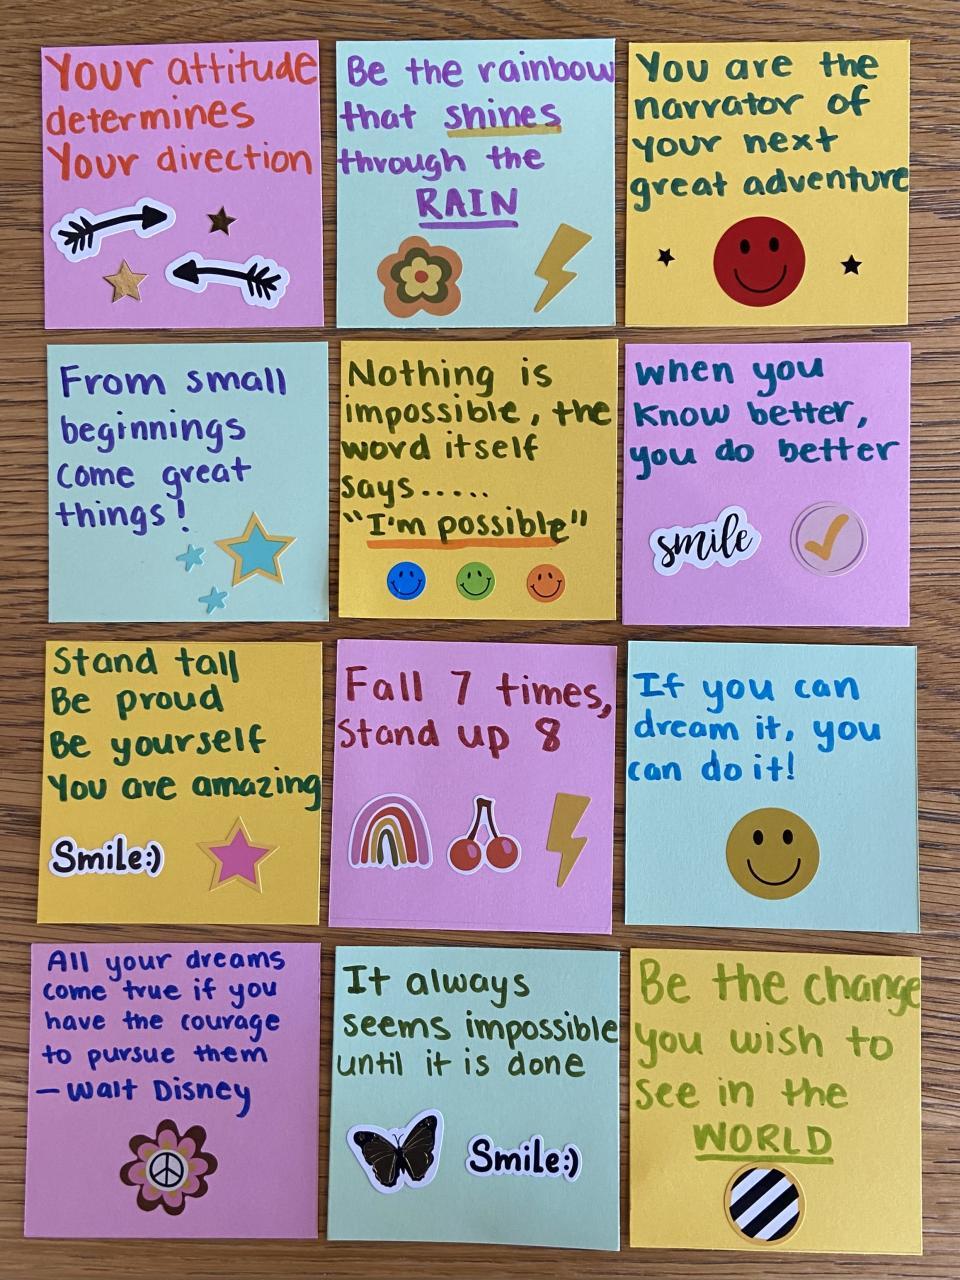 Your attitude
determines
Your direction
Be the rainbow
that shines
through the
RAIN
You are the
narrator of
your next
great adventure
From small
beginnings
come great
things!
Nothing is
impossible, the
word itself
says.....
"I'm possible"
When you
Know better,
you do better
smile
Stand tall
Be proud
Be yourself
You are amazing
Smile:)
Fall 7 times,
Stand up 8
If you can
dream it, you
can do it!
All your dreams
come true if you
have the courage
to pursue them
- Walt Disney
It always
seems impossible
until it is done
Smile:)
Be the change
you wish to
see in the
WORLD